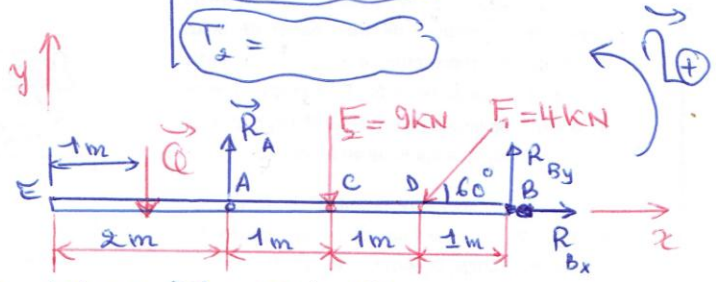 T₂ =
η ⊕
y
1m
Q
R_A
F₂ = 9KN
F₁ = 4KN
R_By
E
A
C
D
60°
B
2m
1m
1m
1m
R_Bx
x